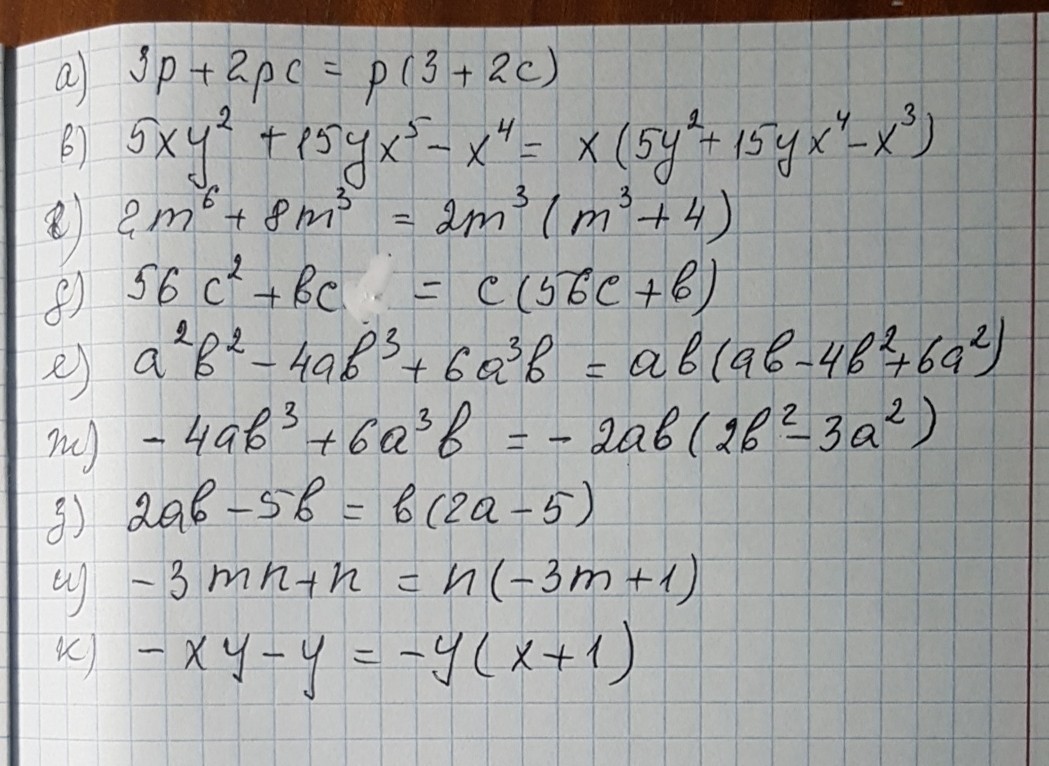 а) 3p + 2pc = p(3 + 2c)
в) 5xy² + 15yx⁵ - x⁴ = x(5y² + 15yx⁴ - x³)
г) 2m⁶ + 8m³ = 2m³(m³ + 4)
д) 56c² + bc = c(56c + b)
е) a²b² - 4ab³ + 6a³b = ab(ab - 4b² + 6a²)
ж) - 4ab³ + 6a³b = - 2ab(2b² - 3a²)
з) 2ab - 5b = b(2a - 5)
и) - 3mn + n = n(-3m + 1)
к) - xy - y = -y(x + 1)